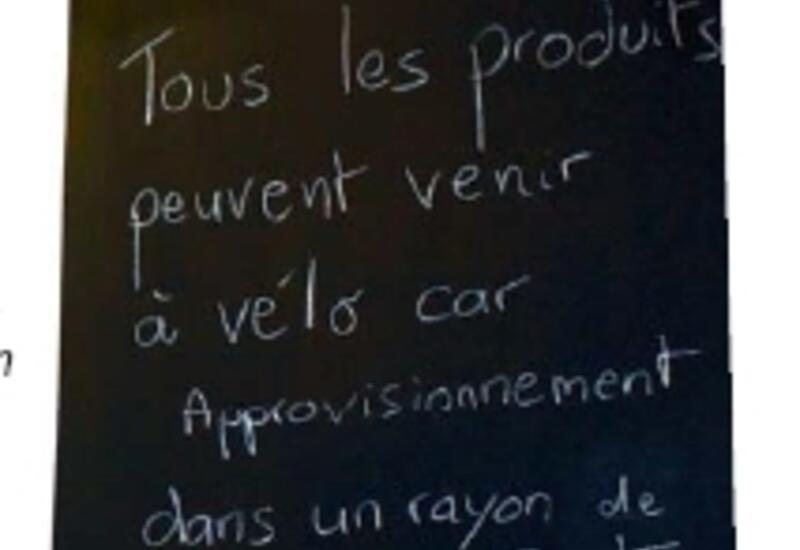 Tous les produits
peuvent venir
à vélo car
Approvisionnement
dans un rayon de